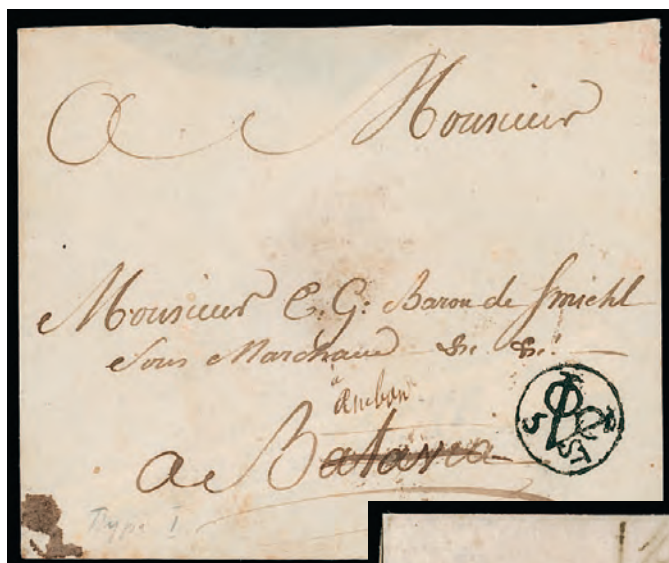 A Monsieur
Monsieur C. G: Baron de
Sous Marchand &c. &c.
à Ambon
a Batavia
5 ST
Type I